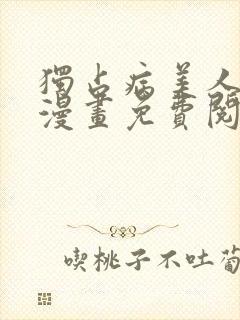 獨占病美人
漫畫免費閱
喫桃子不吐葡